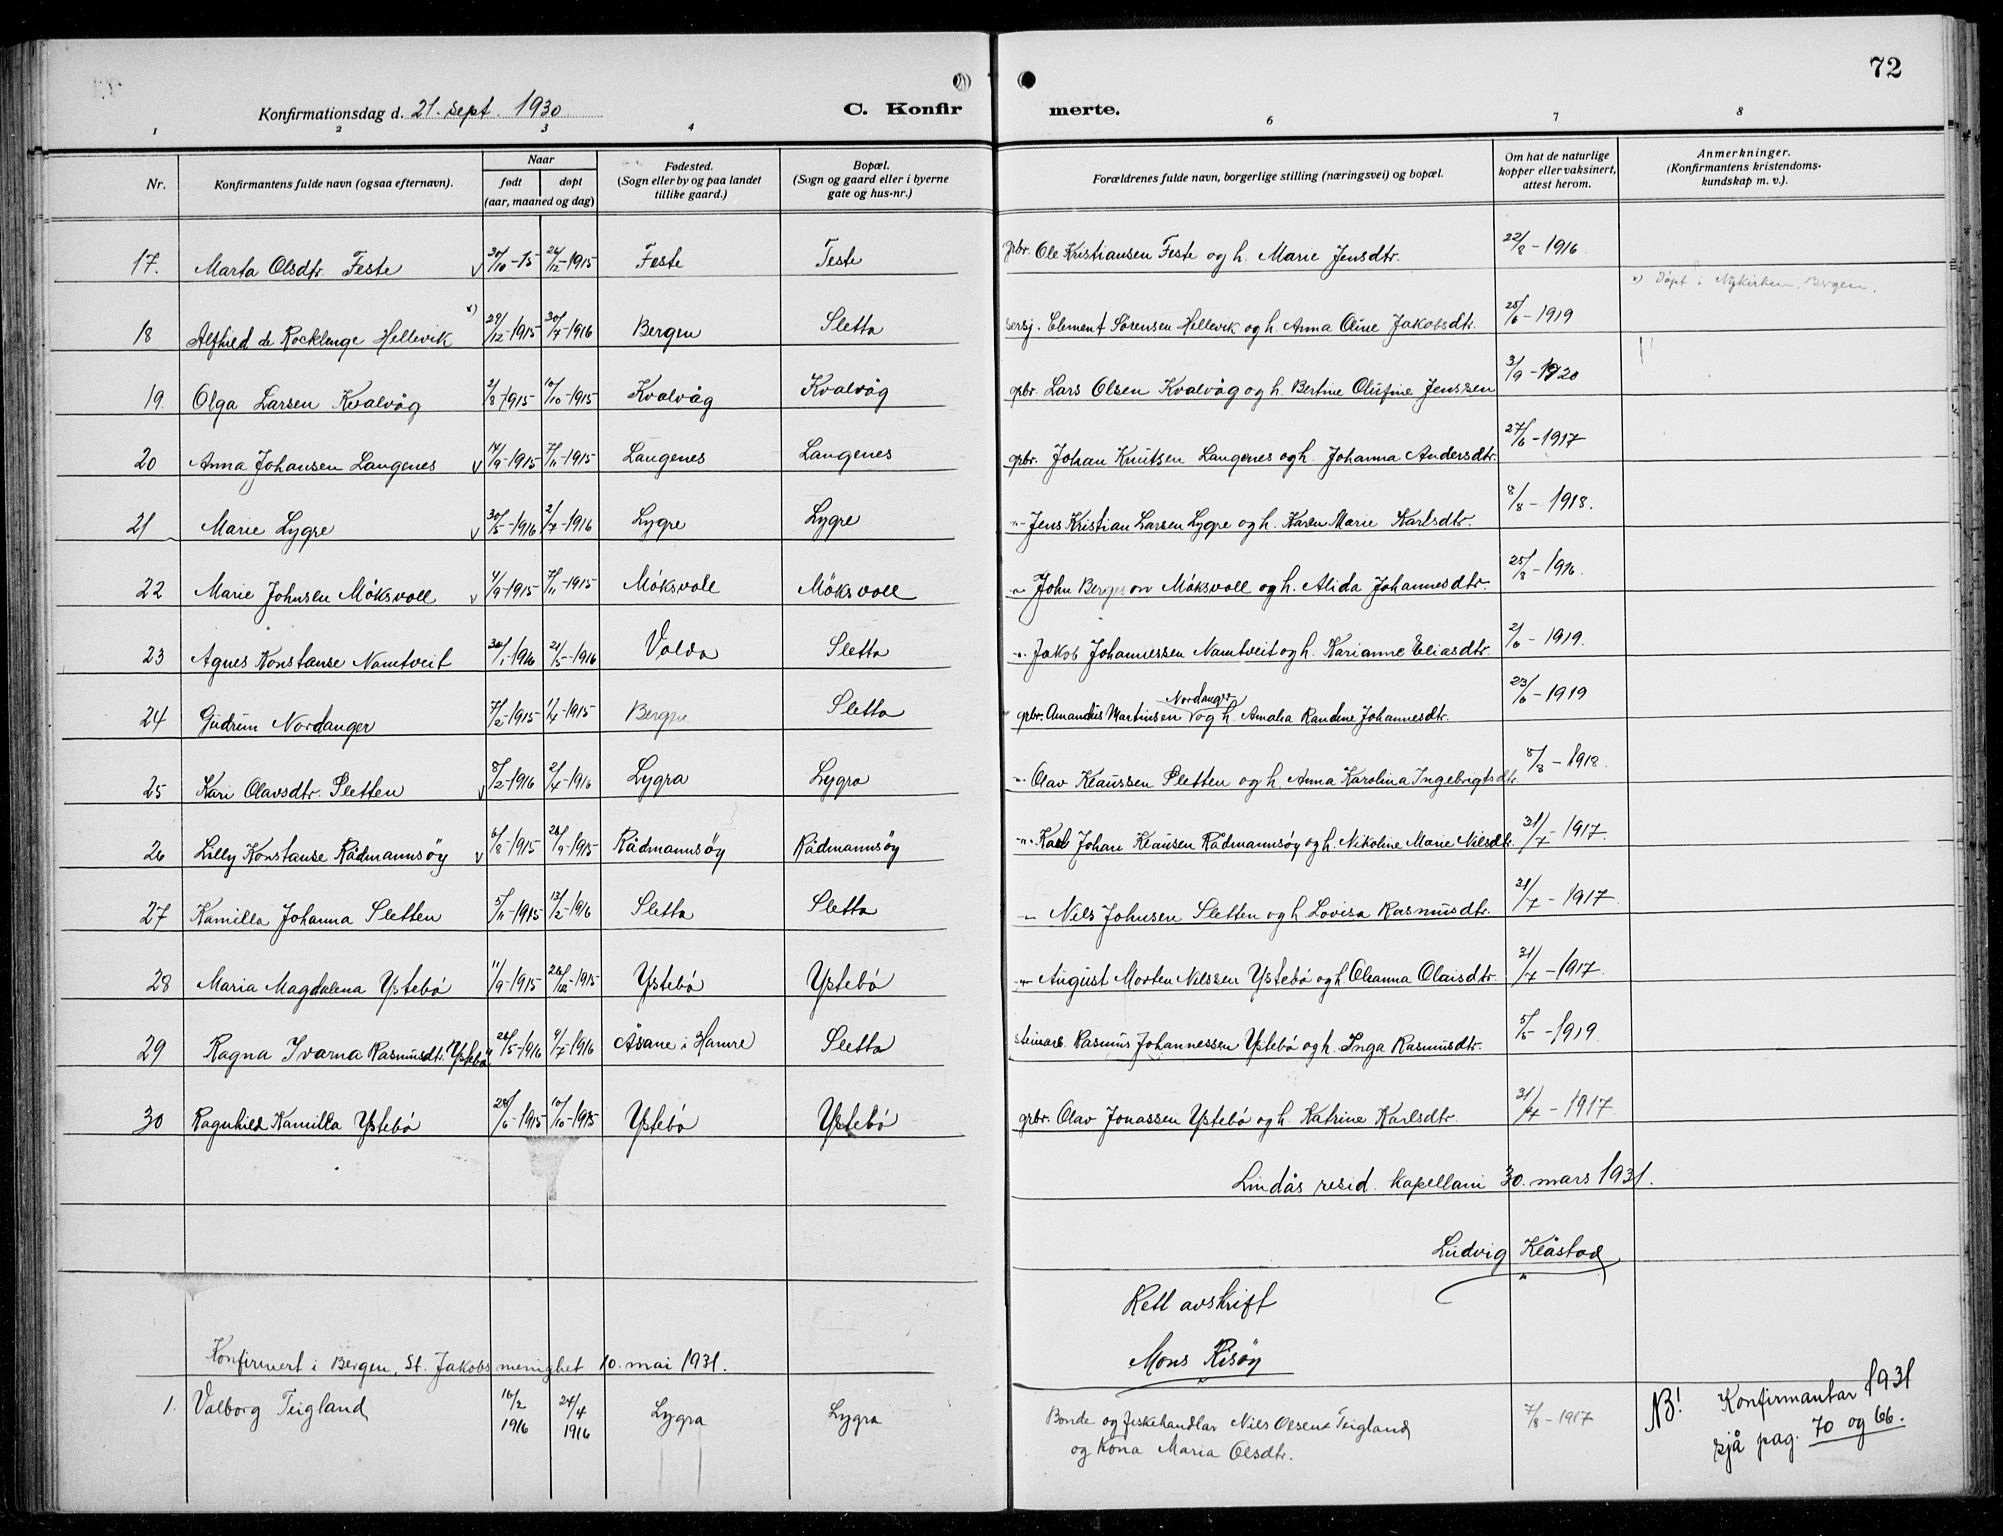 72
Konfirmationsdag d. 21. sept. 1930
C. Konfirmerte.
1 2 3 4 6 7 8
Nr. Konfirmantens fulde navn (ogsaa efternavn). Naar født døpt (aar, maaned og dag) Fødested. (Sogn eller by og paa landet tillike gaard.) Bopæl. (Sogn og gaard eller i byerne gate og hus-nr.) Forældrenes fulde navn, borgerlige stilling (næringsvei) og bopæl. Om hat de naturlige kopper eller vaksinert, attest herom. Anmerkninger. (Konfirmantens kristendoms-kundskap m. v.).
17. Marta Olsdtr. Feste v 30/10-15 26/12-1915 Feste Feste gbr. Ole Kristiansen Feste og h. Marie Jensdtr. 22/8-1916
x) Døpt i Nykirken, Bergen.
18 Alfhild de Rocklenge Hellevik x) 29/12-1915 30/7-1916 Bergen Sletta sersj. Element Sørensen Hellevik og h. Anna Oline Jakobsdtr. 25/6-1919
19 Olga Larsen Kvalvåg 2/8-1915 10/10-1915 Kvalvåg Kvalvåg gbr. Lars Olsen Kvalvåg og h. Bertine Olufine Jenssen 3/9-1920
20 Anna Johansen Langenes v 14/9-1915 7/11-1915 Langenes Langenes gbr. Johan Knutsen Langenes og h. Johanna Andersdtr. 27/6-1917
21 Marie Lygre v 30/5-1916 2/7-1916 Lygre Lygre -"- Jens Kristian Larsen Lygre og h. Karen Marie Karlsdtr. 8/8-1918.
22 Marie Johnsen Møksvoll v 4/9-1915 7/11-1915 Møksvoll Møksvoll -"- John Bergeson Møksvoll og h. Alida Johannesdtr. 25/8-1916.
23 Agnes Konstanse Namtveit 30/1-1916 21/5-1916 Valda Sletta -"- Jakob Johannessen Namtveit og h. Karianne Eliasdtr. 2/6-1919.
24 Gudrun Nordanger 7/2-1915 1/4-1915 Bergen Sletta gbr. Amandus Martinsen Nordanger og h. Amalia Randine Johannesdtr. 23/6-1919
25 Kari Olavsdtr. Sletten v 8/2-1916 2/4-1916 Lygra Lygra -"- Olav Klaussen Sletten og h. Anna Karolina Ingebrigtsdtr. 8/8-1918.
26 Lilly Konstanse Rådmannsøy v 6/8-1915 26/9-1915 Rådmannsøy Rådmannsøy -"- Karl Johan Klausen Rådmannsøy og h. Nikoline Marie Nilsdtr. 31/7-1917.
27 Kamilla Johanna Sletten 5/11-1915 13/2-1916 Sletta Sletta -"- Nils Johnsen Sletten og h. Lovisa Rasmusdtr. 21/7-1917.
28 Maria Magdalena Ystebø 11/9-1915 26/12-1915 Ystebø Ystebø -"- August Morten Nilssen Ystebø og h. Oleanna Olaisdtr. 31/7-1917.
29 Ragna Ivarna Rasmusdtr. Ystebø 28/5-1916 9/7-1916 Åsane i Hamre Sletta steinarb. Rasmus Johannessen Ystebø og h. Inga Rasmusdtr. 5/5-1919.
30 Ragnhild Kamilla Ystebø 28/6-1915 10/10-1915 Ystebø Ystebø gbr. Olav Jonassen Ystebø og h. Katrine Karlsdtr. 31/7-1917.
Lindås resid. kapellani 30. mars 1931.
Ludvig Klåstad
Rett avskrift
Mons Risøy
Konfirmert i Bergen, St. Jakobs menighet 10. mai 1931.
1. Valborg Teigland 16/2 1916 24/4 1916 Lygra Lygra Bonde og fiskehandlar Nils Olsen Teigland og kona Maria Olsdtr. 7/8-1917
NB! Konfirmantar 1931
sjå pag. 70 og 66.